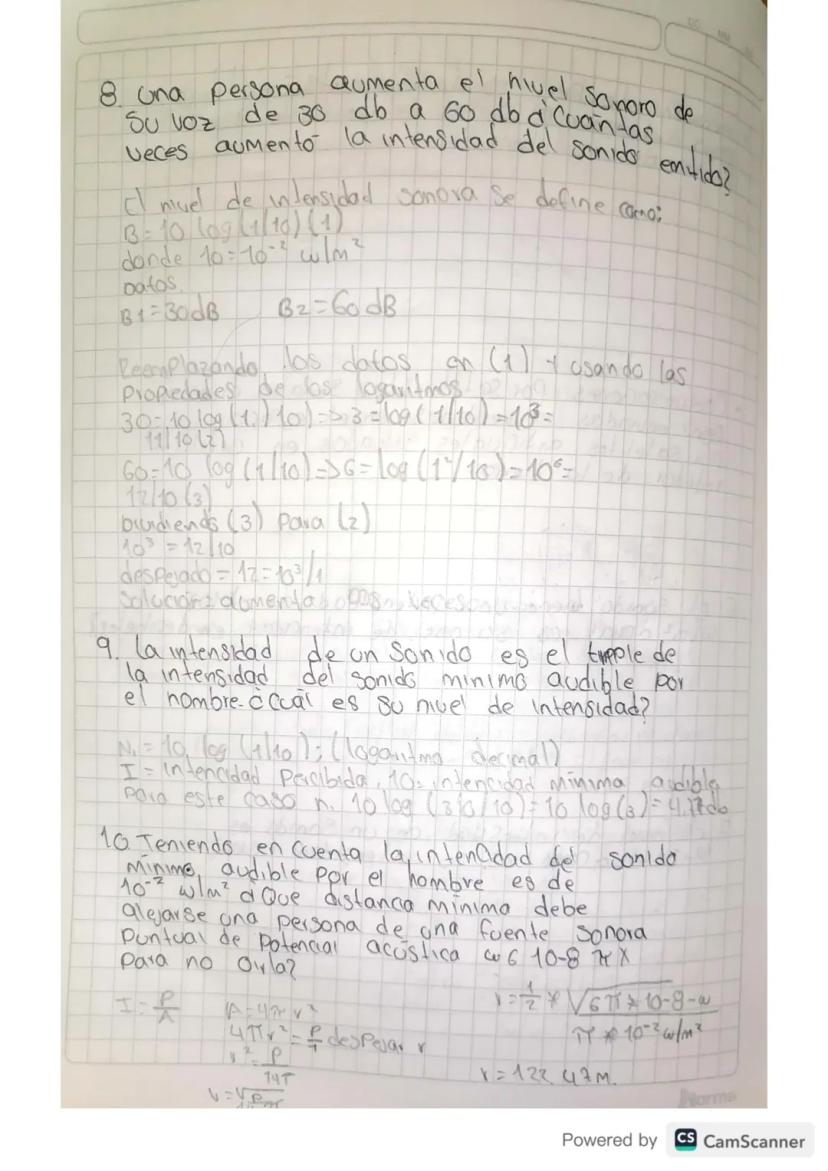 8. Una persona aumenta el nivel sonoro de
su voz de 30 db a 60 db ¿Cuántas
veces aumento la intensidad del sonido emitido?
El nivel de intensidad sonora se define como:
B=10 log(1/10)(1)
donde 10=10⁻² w/m²
Datos
B1=30dB B2=60dB
Reemplazando los datos en (1) y usando las
Propiedades de los logaritmos
30=10 log(1/10)=>3=log(1/10)=10³=
11/10(2)
60=10 log(1/10)=>6=log(1/10)=10⁶=
12/10(3)
(3) para (2)
10³=12/10
despejado=12=10³/1
Solución: aumenta veces
9. La intensidad de un sonido es el triple de
la intensidad del sonido minimo audible por
el hombre. ¿cuál es su nivel de intensidad?
N.=10 log(1/10); (logaritmo decimal)
I=intencidad Percibida, 10=intencidad mínima audible
Para este caso n. 10 log (3 /10)=10 log(3)=4.77db
10. Teniendo en cuenta la intencidad del sonido
mínimo, audible por el hombre es de
10⁻² w/m² ¿Que distancia mínima debe
alejarse una persona de una fuente sonora
Puntual de Potencial acústica w 6 10-8 π x
Para no oirla?
I=P/A A=4πr² r=1/2*√6π*10-8-w
4πr²=P/I despejar r π*10⁻²w/m²
r²=P
r=122.47M.
Norma
Powered by CS CamScanner